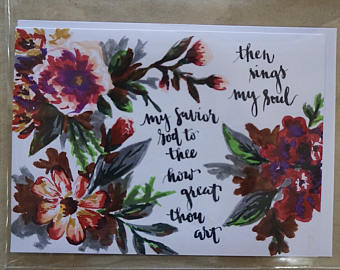 then
sings
my soul
my savior
God to
thee
how
great
thou
art